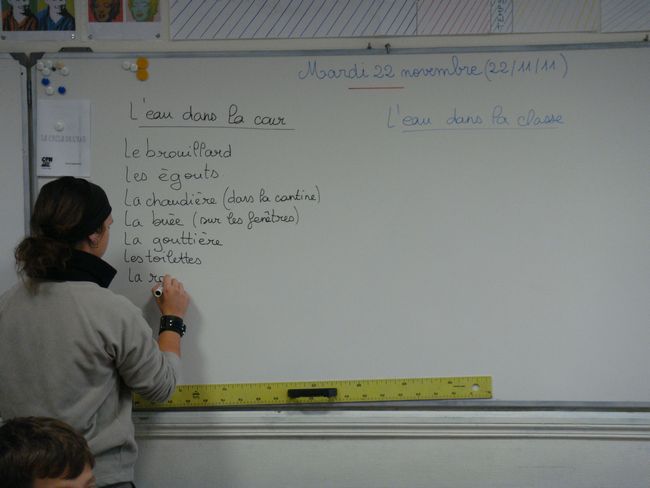 Mardi 22 novembre (22/11/11)
L'eau dans la cour
L'eau dans la classe
Le brouillard
Les égouts
La chaudière (dans la cantine)
La buée (sur les fenêtres)
La gouttière
Les toilettes
La ro